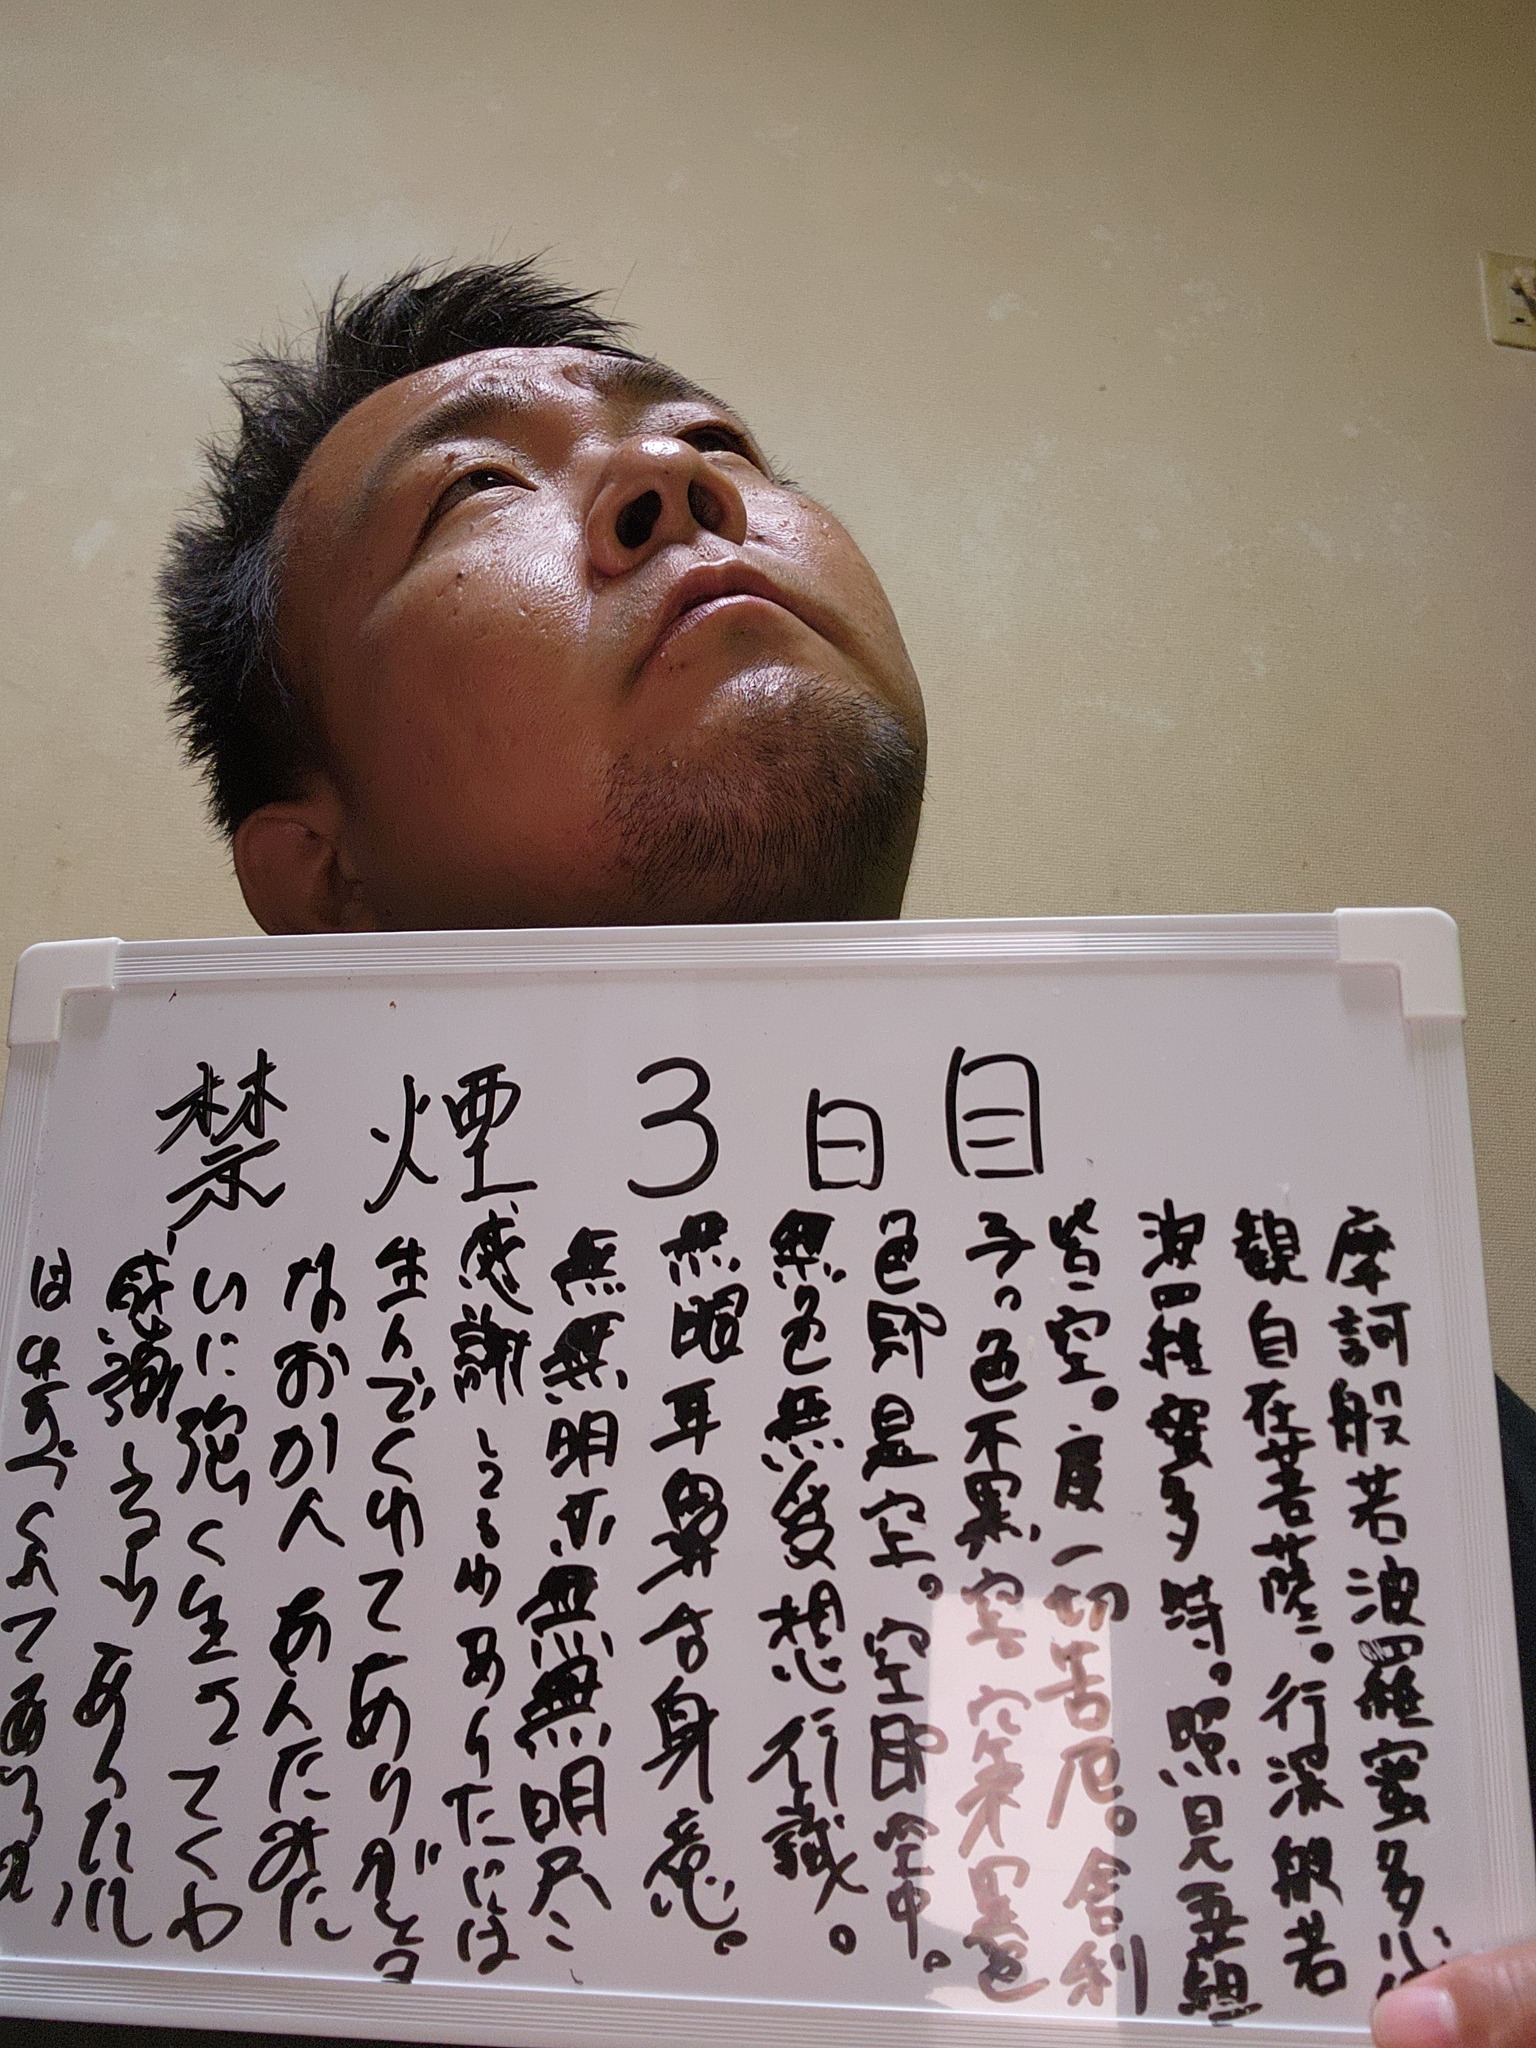 禁煙 3日目
摩訶般若波羅蜜多心
観自在菩薩。行深般若
波羅蜜多時。照見五蘊
皆空。度一切苦厄。舎利
子。色不異空 空不異色
色即是空。空即 空中。
無色無受想行識。
無眼耳鼻舌身意。
無無明亦無無明尽
感謝 ありた には
生んでくれてありがとう
なおかん あんたみた
いに強く生きてくわ
感謝するわ あったれ
は学 くんで